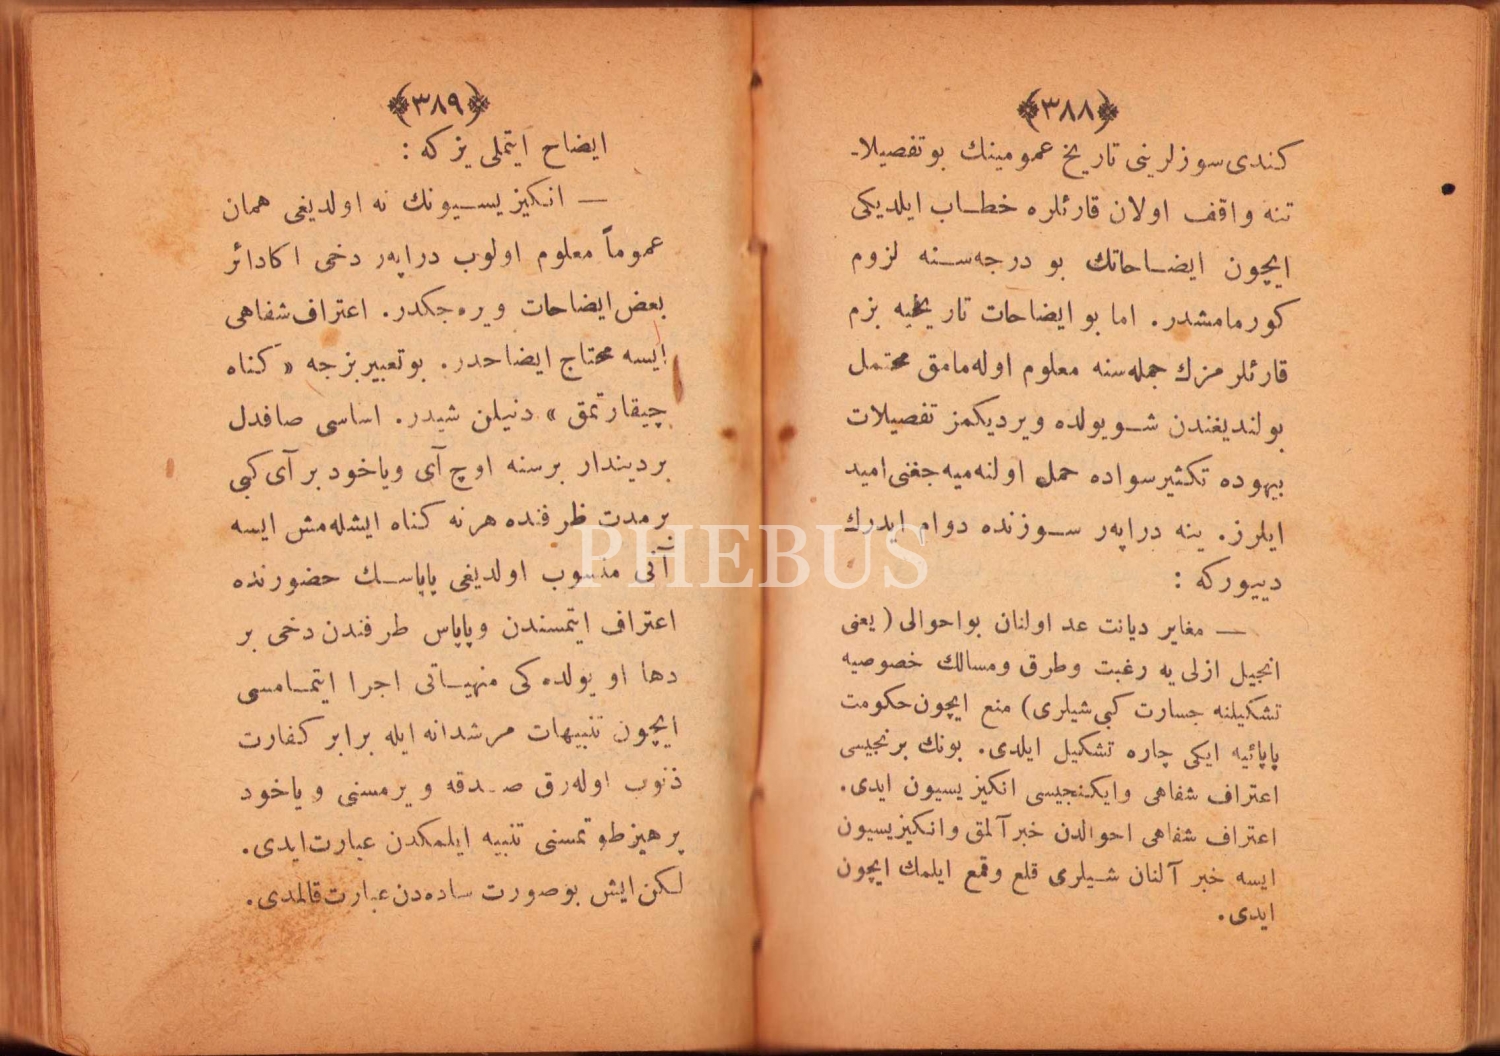 ﴿٣٨٨﴾
كندى سوزلرينى تاريخ عمومينك بو تفصيلا-
تنه واقف اولان قارئلره خطاب ايلديكى
ايچون ايضاحاتك بو درجه‌سنه لزوم
كورمامشدر. اما بو ايضاحات تاريخيه بزم
قارئلرمزك جمله‌سنه معلوم اوله‌مامق محتمل
بولنديغندن شو يولده ويرديكمز تفصيلات
بيهوده تكثير سواده حمل اولنه‌ميه‌جغنى اميد
ايلرز. ينه دراپه‌ر سوزنده دوام ايدرك
دييوركه :
— مغاير ديانت عد اولنان بو احوالى ( يعنى
انجيل ازلى يه رغبت وطرق ومسالك خصوصيه
تشكيلنه جسارت كبى شيلرى) منع ايچون حكومت
پاپائيه ايكى چاره تشكيل ايلدى. بونك برنجيسى
اعتراف شفاهى وايكنجيسى انكيزيسيون ايدى.
اعتراف شفاهى احوالدن خبر آلمق وانكيزيسيون
ايسه خبر آلنان شيلرى قلع وقمع ايلمك ايچون
ايدى.
﴿٣٨٩﴾
ايضاح ايتملى يز كه :
— انكيزيسيونك نه اولديغى همان
عموماً معلوم اولوب دراپه‌ر دخى اكا دائر
بعض ايضاحات ويره‌جكدر. اعتراف شفاهى
ايسه محتاج ايضاحدر. بو تعبير بزجه « كناه
چيقارتمق » دنيلن شيدر. اساسى صافدل
برديندار برسنه اوچ آى وياخود بر آى كبى
بر مدت ظرفنده هر نه كناه ايشله‌مش ايسه
آنى منسوب اولديغى پاپاسك حضورنده
اعتراف ايتمسندن وپاپاس طرفندن دخى بر
دها او يولده كى منهياتى اجرا ايتمامسى
ايچون تنبيهات مرشدانه ايله برابر كفارت
ذنوب اوله‌رق صدقه ويرمسنى وياخود
پرهيز طوتمسنى تنبيه ايلمكدن عبارت ايدى.
لكن ايش بو صورت ساده‌دن عبارت قالمدى.
PHEBUS